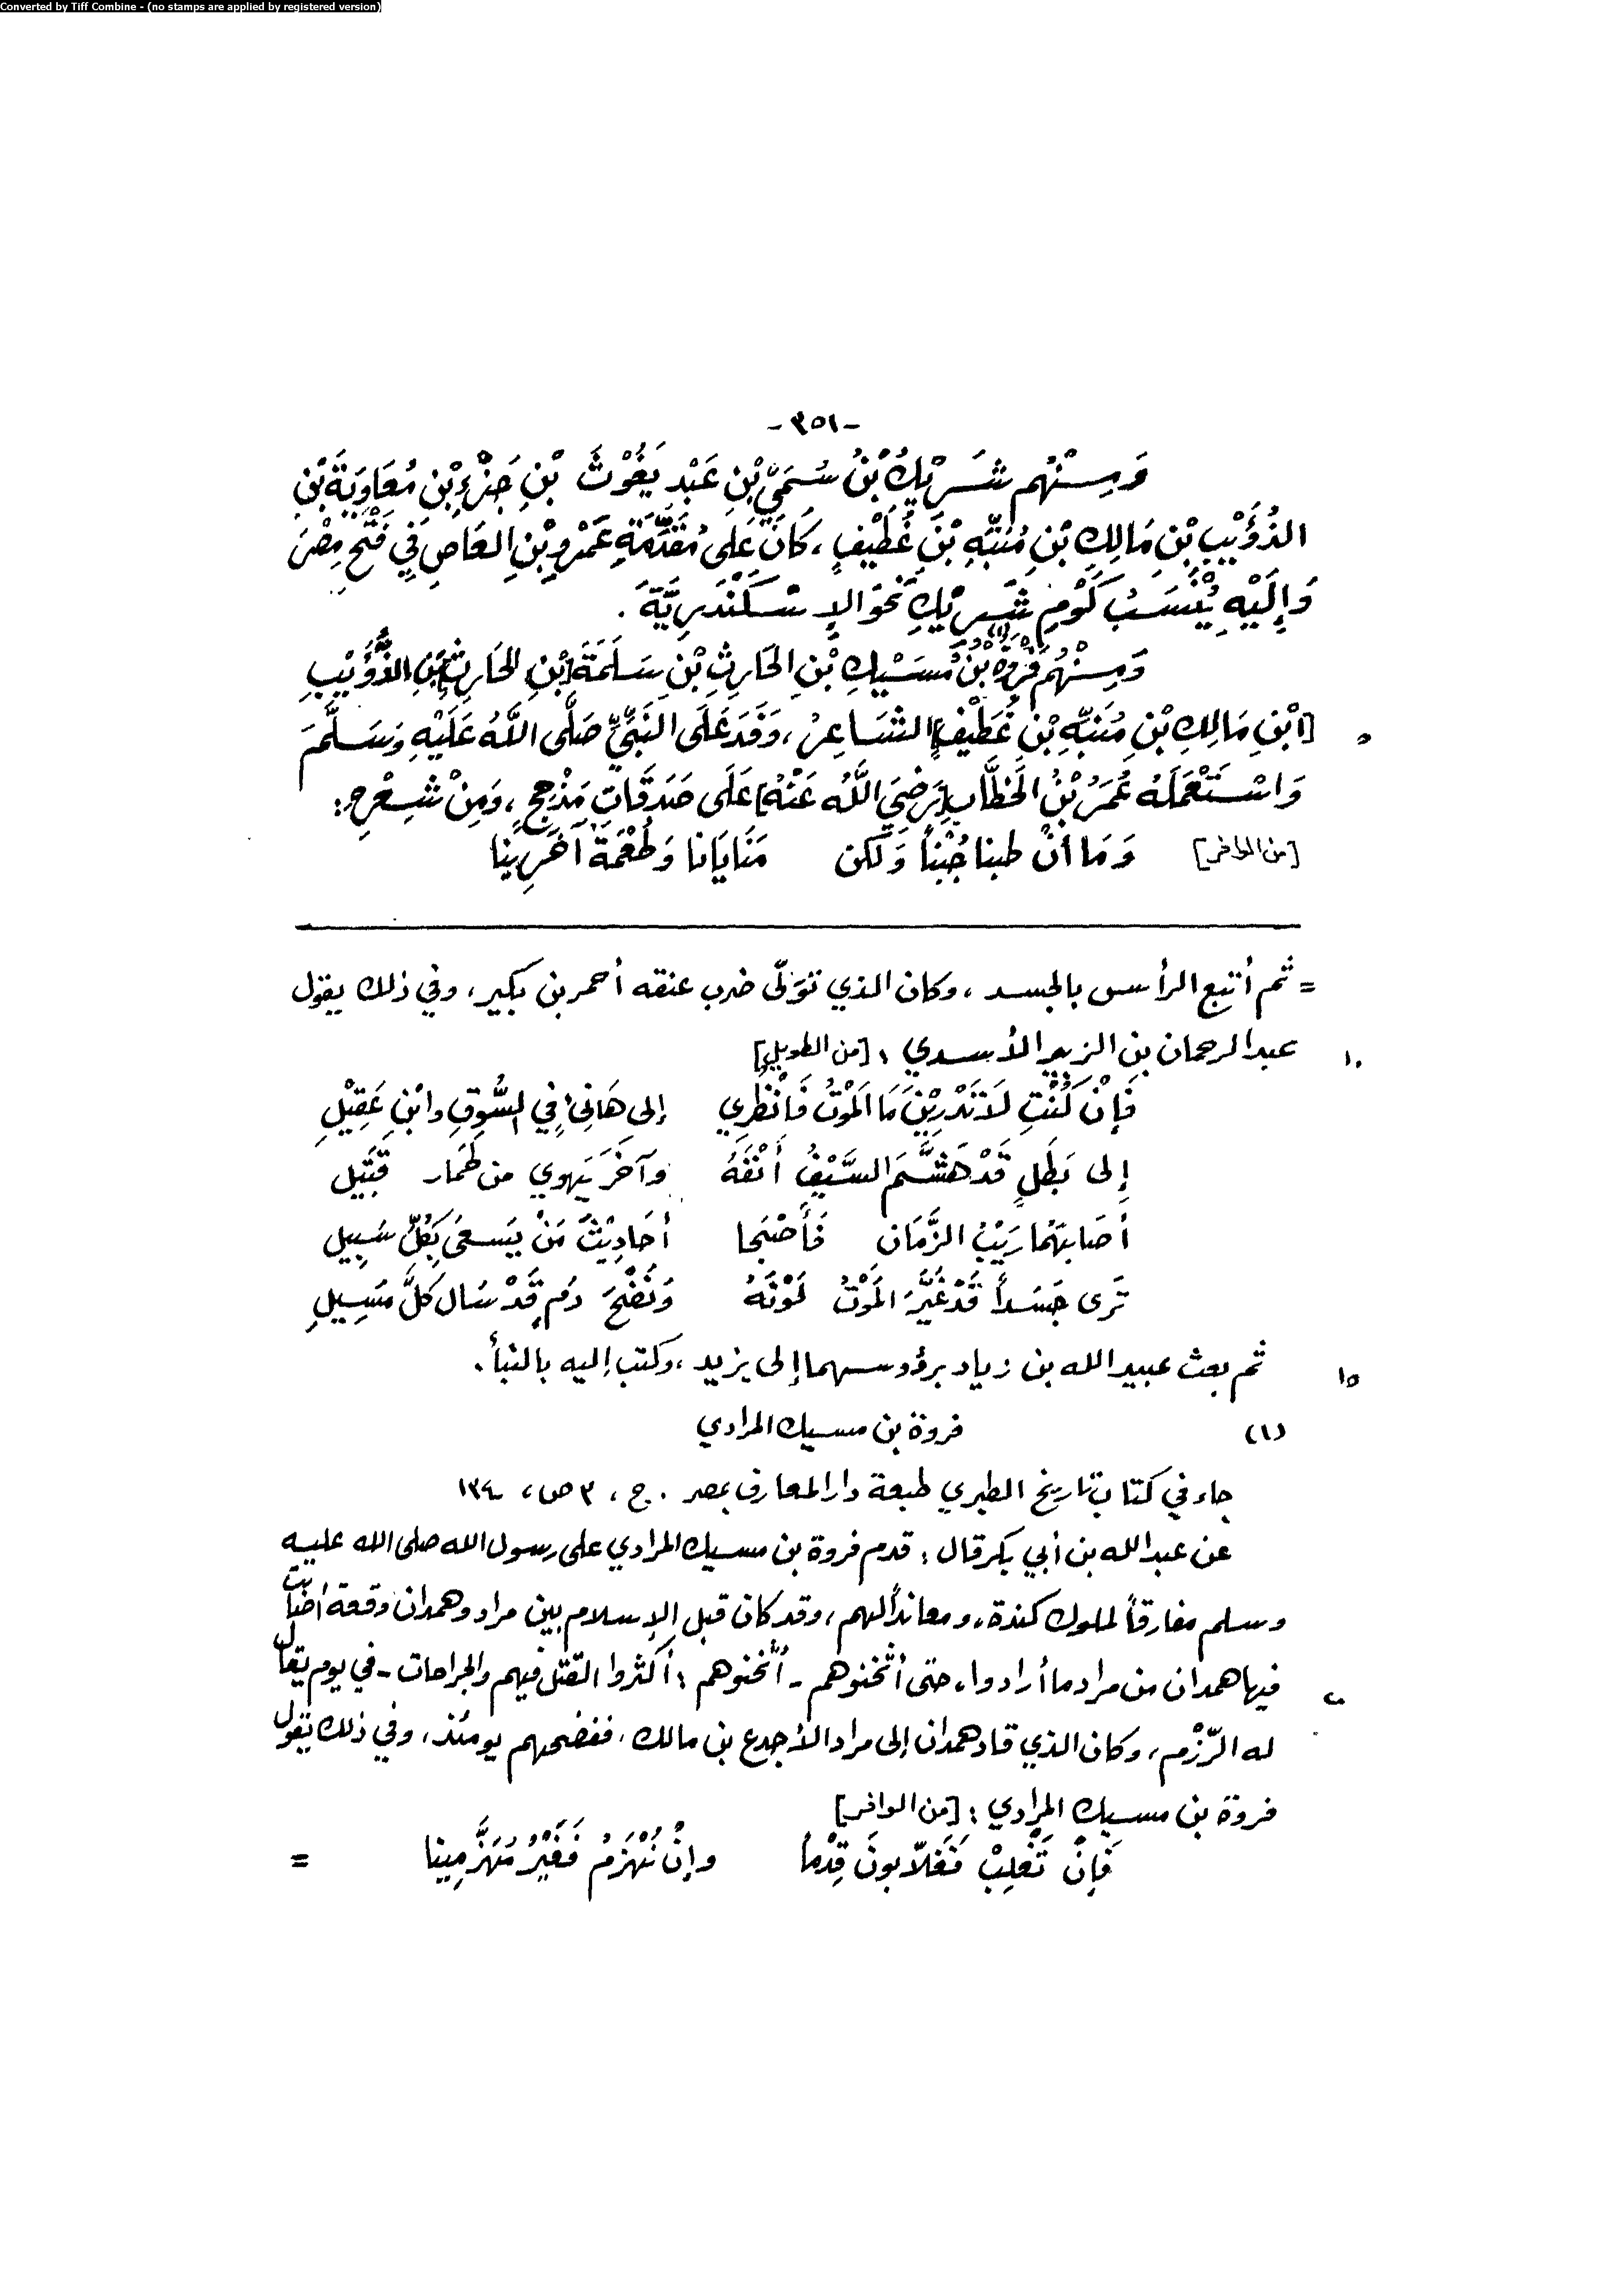 Converted by Tiff Combine - (no stamps are applied by registered version)
-٣٥١-
وَمِنْهُم شَرِيْكُ بْنُ سُمَيِّ بْنِ عَبْدِ يَغُوْثَ بْنِ جَزْءِ بْنِ مُعَاوِيَةَ بْنِ
الذُّؤَيْبِ بْنِ مَالِكِ بْنِ مُنَبِّهِ بْنِ غُطَيْفٍ، كَانَ عَلَى مُقَدِّمَةِ عَمْرِو بْنِ العَاصِ فِي فَتْحِ مِصْرَ
وَإِلَيْهِ يُنْسَبُ كَوْمُ شَرِيْكٍ نَحْوَ الإِسْكَنْدَرِيَّةَ .
وَمِنْهُم فَرْوَةُ بْنُ مُسَيْكِ (١) بْنِ الحَارِثِ بْنِ سَلَمَةَ [بْنِ الحَارِثِ] بْنِ الذُّؤَيْبِ
[ابْنِ مَالِكِ بْنِ مُنَبِّهِ بْنِ غُطَيْفٍ] الشَّاعِرُ، وَفَدَ عَلَى النَّبِيِّ صَلَّى اللَّهُ عَلَيْهِ وَسَلَّمَ ٥
وَاسْتَعْمَلَهُ عُمَرُ بْنُ الخَطَّابِ [رَضِيَ اللَّهُ عَنْهُ] عَلَى صَدَقَاتِ مَذْحِجٍ، وَمِنْ شِعْرِهِ:
[من الوافر] وَمَا أنْ طبنا جُبْناً وَلكن مَنَايَانا وَطُعْمَةُ آخَرِينا
= ثم أتبع الرأس بالجسد ، وكان الذي تَوَلّى ضرب عنقه أحمر بن بكير، وفي ذلك يقول
عبد الرحمان بن الزبير الأسدي : [من الطويل] ١٠
فَإنْ كُنْتِ لَا تَدْرِيْنَ مَا المَوْتُ فَانْظُرِي إلى هَانِئٍ فِي السُّوقِ وابْنِ عَقِيْلِ
إِلى بَطَلٍ قَدْ هَشَّمَ السَّيْفُ أَنْفَهُ وآخَرَ يَهوي من طَمَار قَتِيل
أصَابَهُما رَيْبُ الزَّمَان فَأصْبَحا أحَادِيْثَ مَنْ يَسعَى بِكُلِّ سَبِيل
تَرى جَسَداً قَدْ غَيَّرَ المَوْتُ لَوْنَهُ وَنَضْحَ دَمٍ قَدْ سَال كلَّ مَسِيلِ
ثم بعث عبيد الله بن زياد برؤوسهما إلى يزيد ، وكتب إليه بالنبأ . ١٥
(١) فروة بن مسيك المرادي
جاء في كتاب تاريخ الطبري طبعة دار المعارف بمصر . ج ، ٣ ص ، ١٣٤
عن عبد الله بن أبي بكر قال : قدم فروة بن مسيك المرادي على رسول الله صلى الله عليه
وسلم مفارقاً لملوك كندة، ومعانداً لهم، وقد كان قبل الإسلام بين مراد وهمدان وقعة أصابت
فيها همدان من مراد ما أرادوا، حتى أثخنوهم - أثخنوهم : أكثروا القتل فيهم والجراحات - في يوم يقال ٢٠
له الرَّزْم، وكان الذي قاد همدان إلى مراد الأجدع بن مالك، ففضحهم يومئذ، وفي ذلك يقول
فروة بن مسيك المرادي : [من الوافر]
فَإنْ نَغْلِبْ فَغَلاّبونَ قِدْماً وإنْ نُهْزَمْ فَغَيْرُ مُهَزَّمِينا =